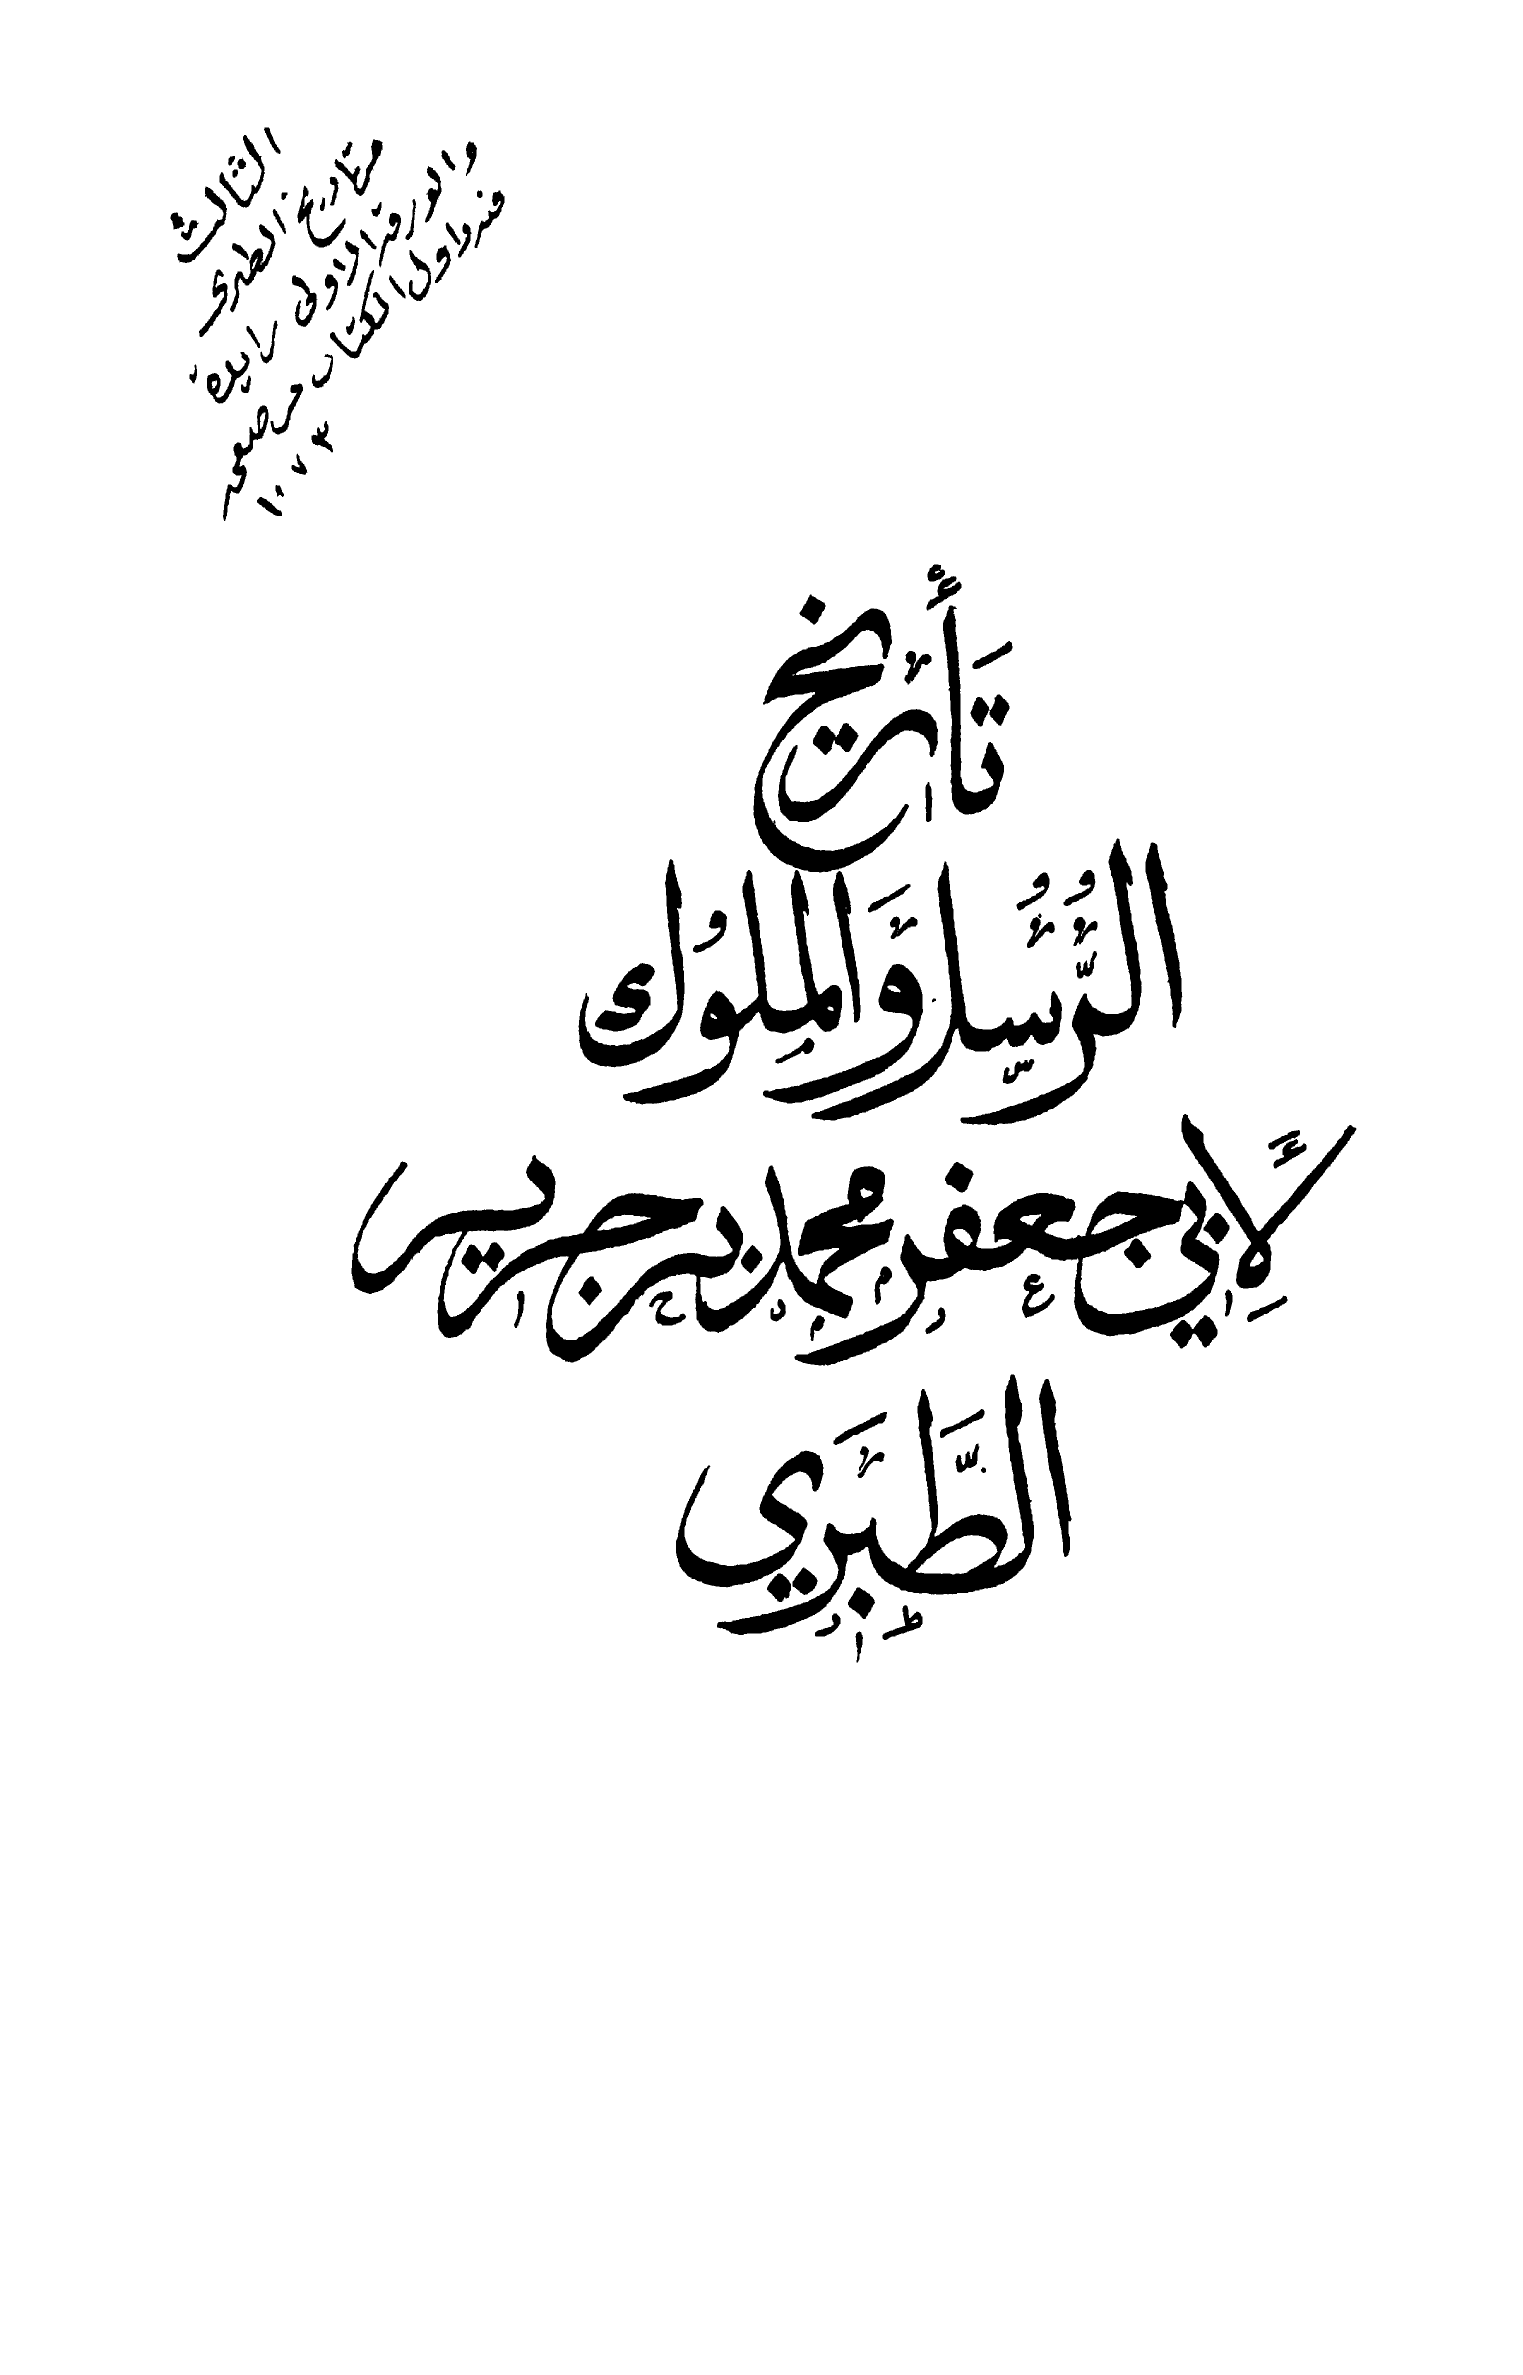 الثالث
من تاريخ الطبري
والورقة الاولى
منه واول الكتاب من صفحه
١٠٧٣
تَأْرِيخ
الرُّسُل وَالملُوك
لأَبِي جعفر محمد بن جرير
الطَّبَرِي